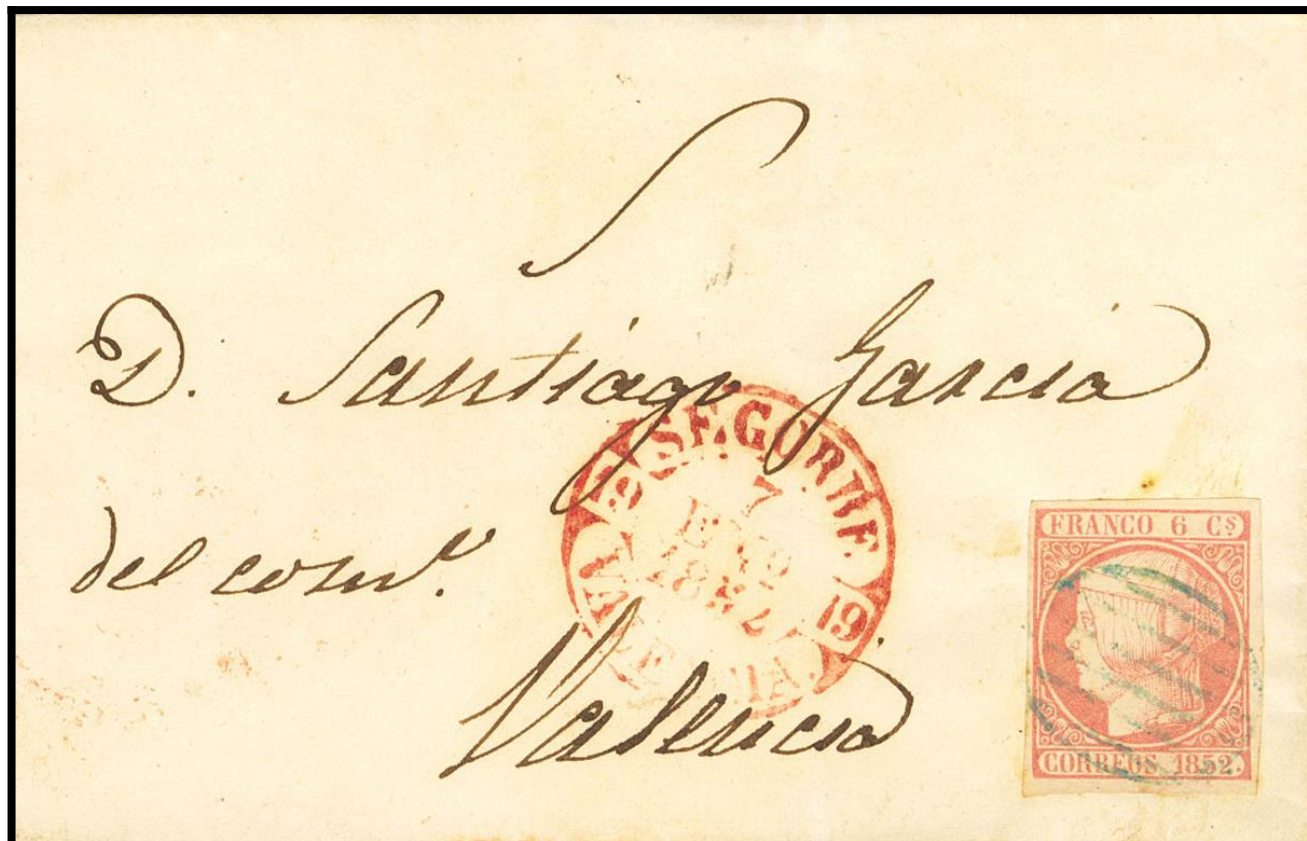 S
D. Santiago Garcia
del com.º
Valencia
SEGORBE 19
7
ENE
1852
VALENCIA.
FRANCO 6 Cs
CORREOS 1852.